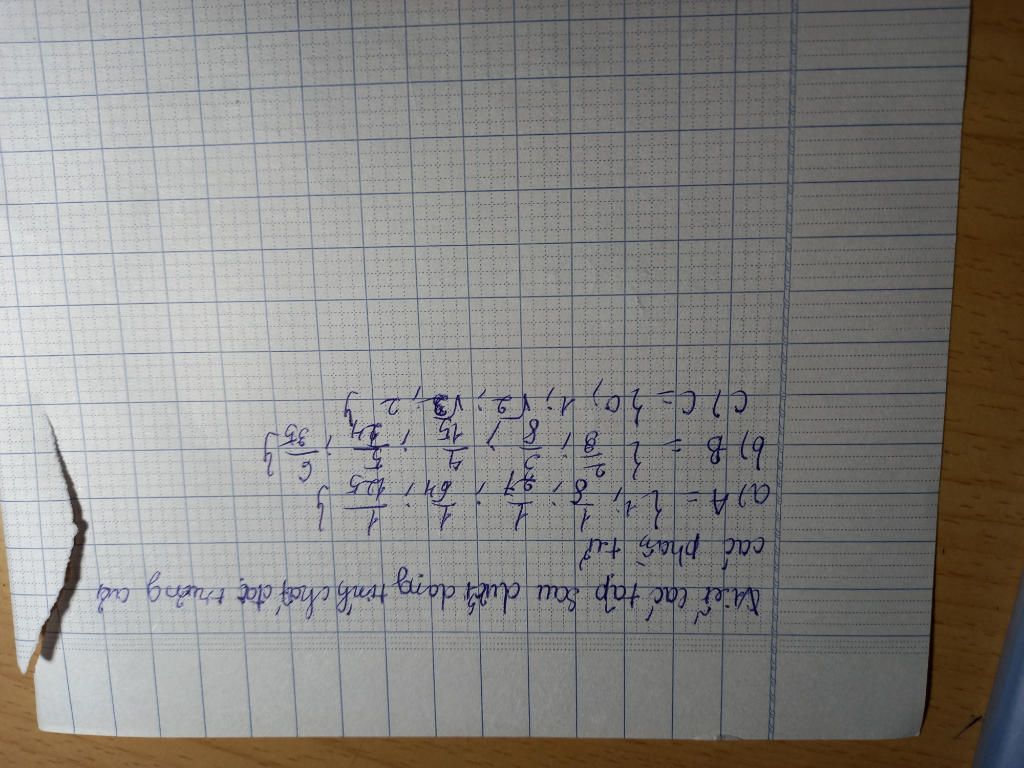 Viết các tập sau dưới dạng tính chất đặc trưng của
các phần tử
a) A = { 1; 1/8; 1/27; 1/64; 1/125 }
b) B = { 2/3; 3/8; 4/15; 5/24; 6/35 }
c) C = { 0; 1; √2; √3; 2 }